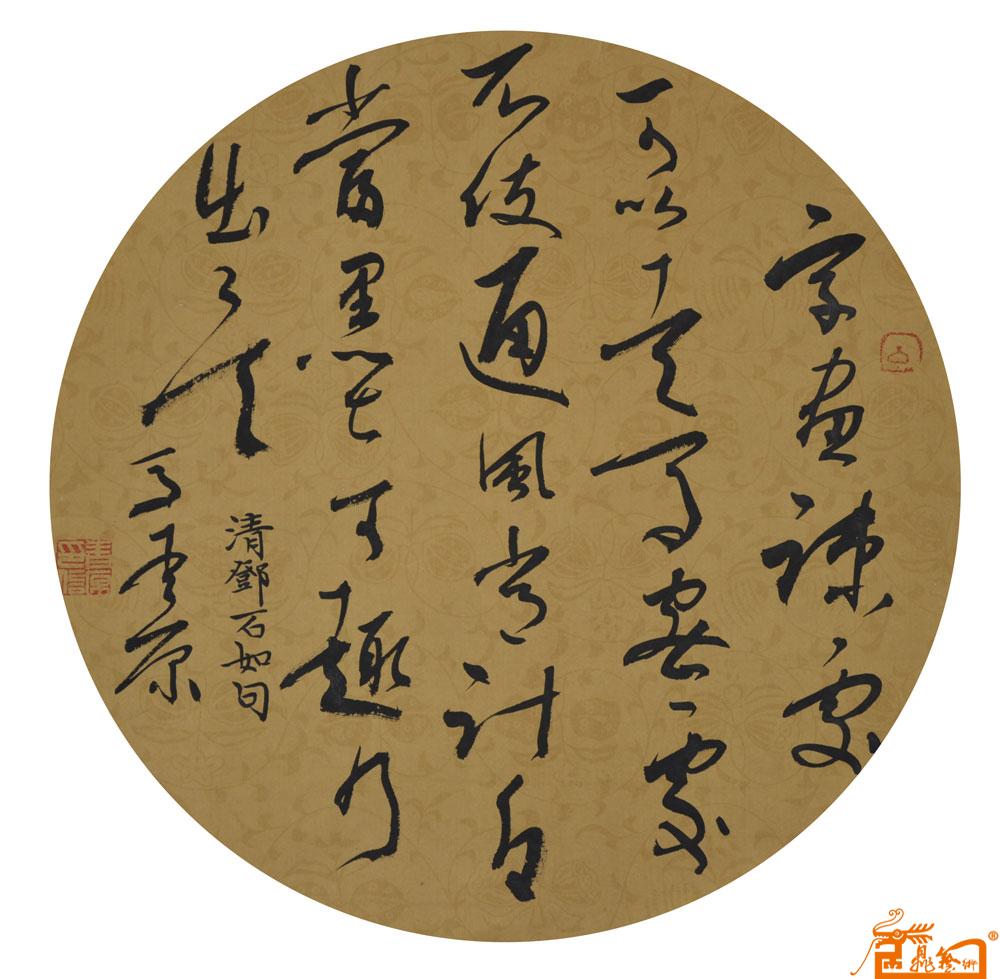 字畫疎處
可以走馬密處
不使通風常計白
當黑奇趣乃
出
清鄧石如句